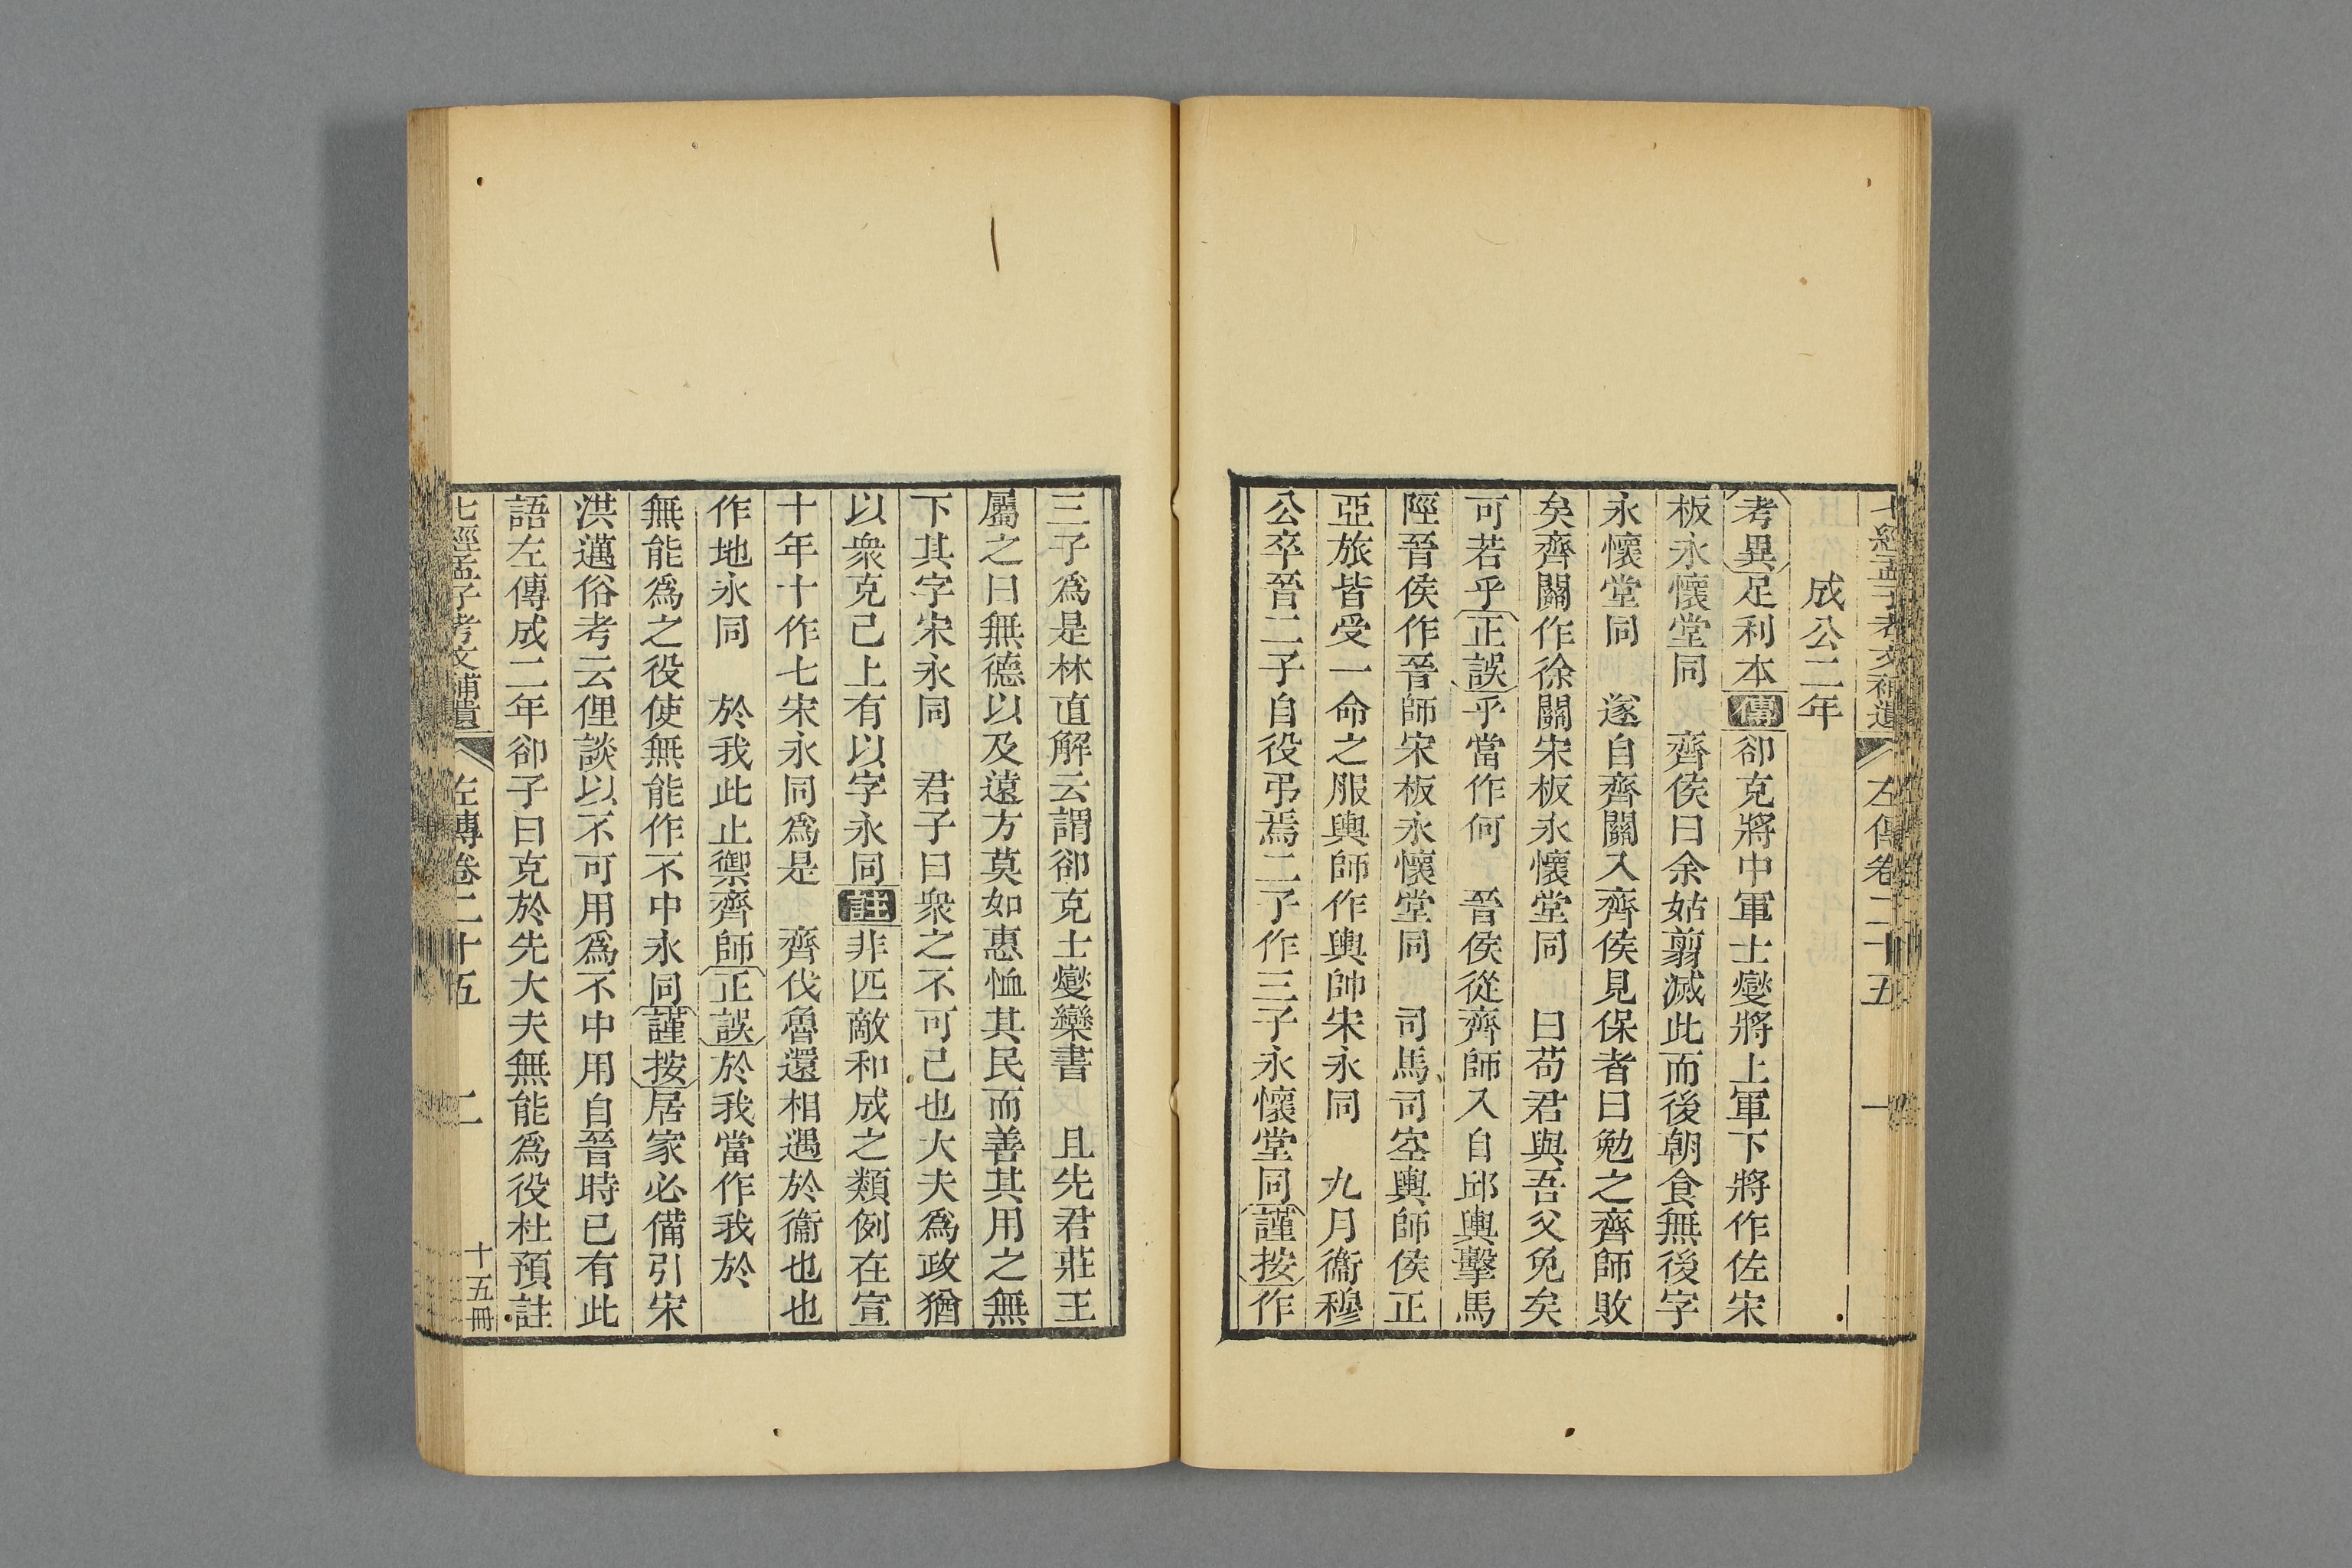 七經孟子考文補遺 左傳卷二十五 一
成公二年
考異足利本傳郤克將中軍士燮將上軍下將作佐宋
板永懷堂同 齊侯曰余姑翦滅此而後朝食無後字
永懷堂同 遂自齊關入齊侯見保者曰勉之齊師敗
矣齊關作徐關宋板永懷堂同 曰苟君與吾父免矣
可若乎正誤乎當作何 晉侯從齊師入自邱輿擊馬
陘晉侯作晉師宋板永懷堂同 司馬司空輿師侯正
亞旅皆受一命之服輿師作輿帥宋永同 九月衞穆
公卒晉二子自役弔焉二子作三子永懷堂同謹按作
三子爲是林直解云謂郤克士燮欒書 且先君莊王
屬之曰無德以及遠方莫如惠恤其民而善其用之無
下其字宋永同 君子曰衆之不可已也大夫爲政猶
以衆克己上有以字永同註非匹敵和成之類例在宣
十年十作七宋永同爲是 齊伐魯還相遇於衞也也
作地永同 於我此止禦齊師正誤於我當作我於
無能爲之役使無能作不中永同謹按居家必備引宋
洪邁俗考云俚談以不可用爲不中用自晉時已有此
語左傳成二年郤子曰克於先大夫無能爲役杜預註
七經孟子考文補遺 左傳卷二十五 二 十五冊